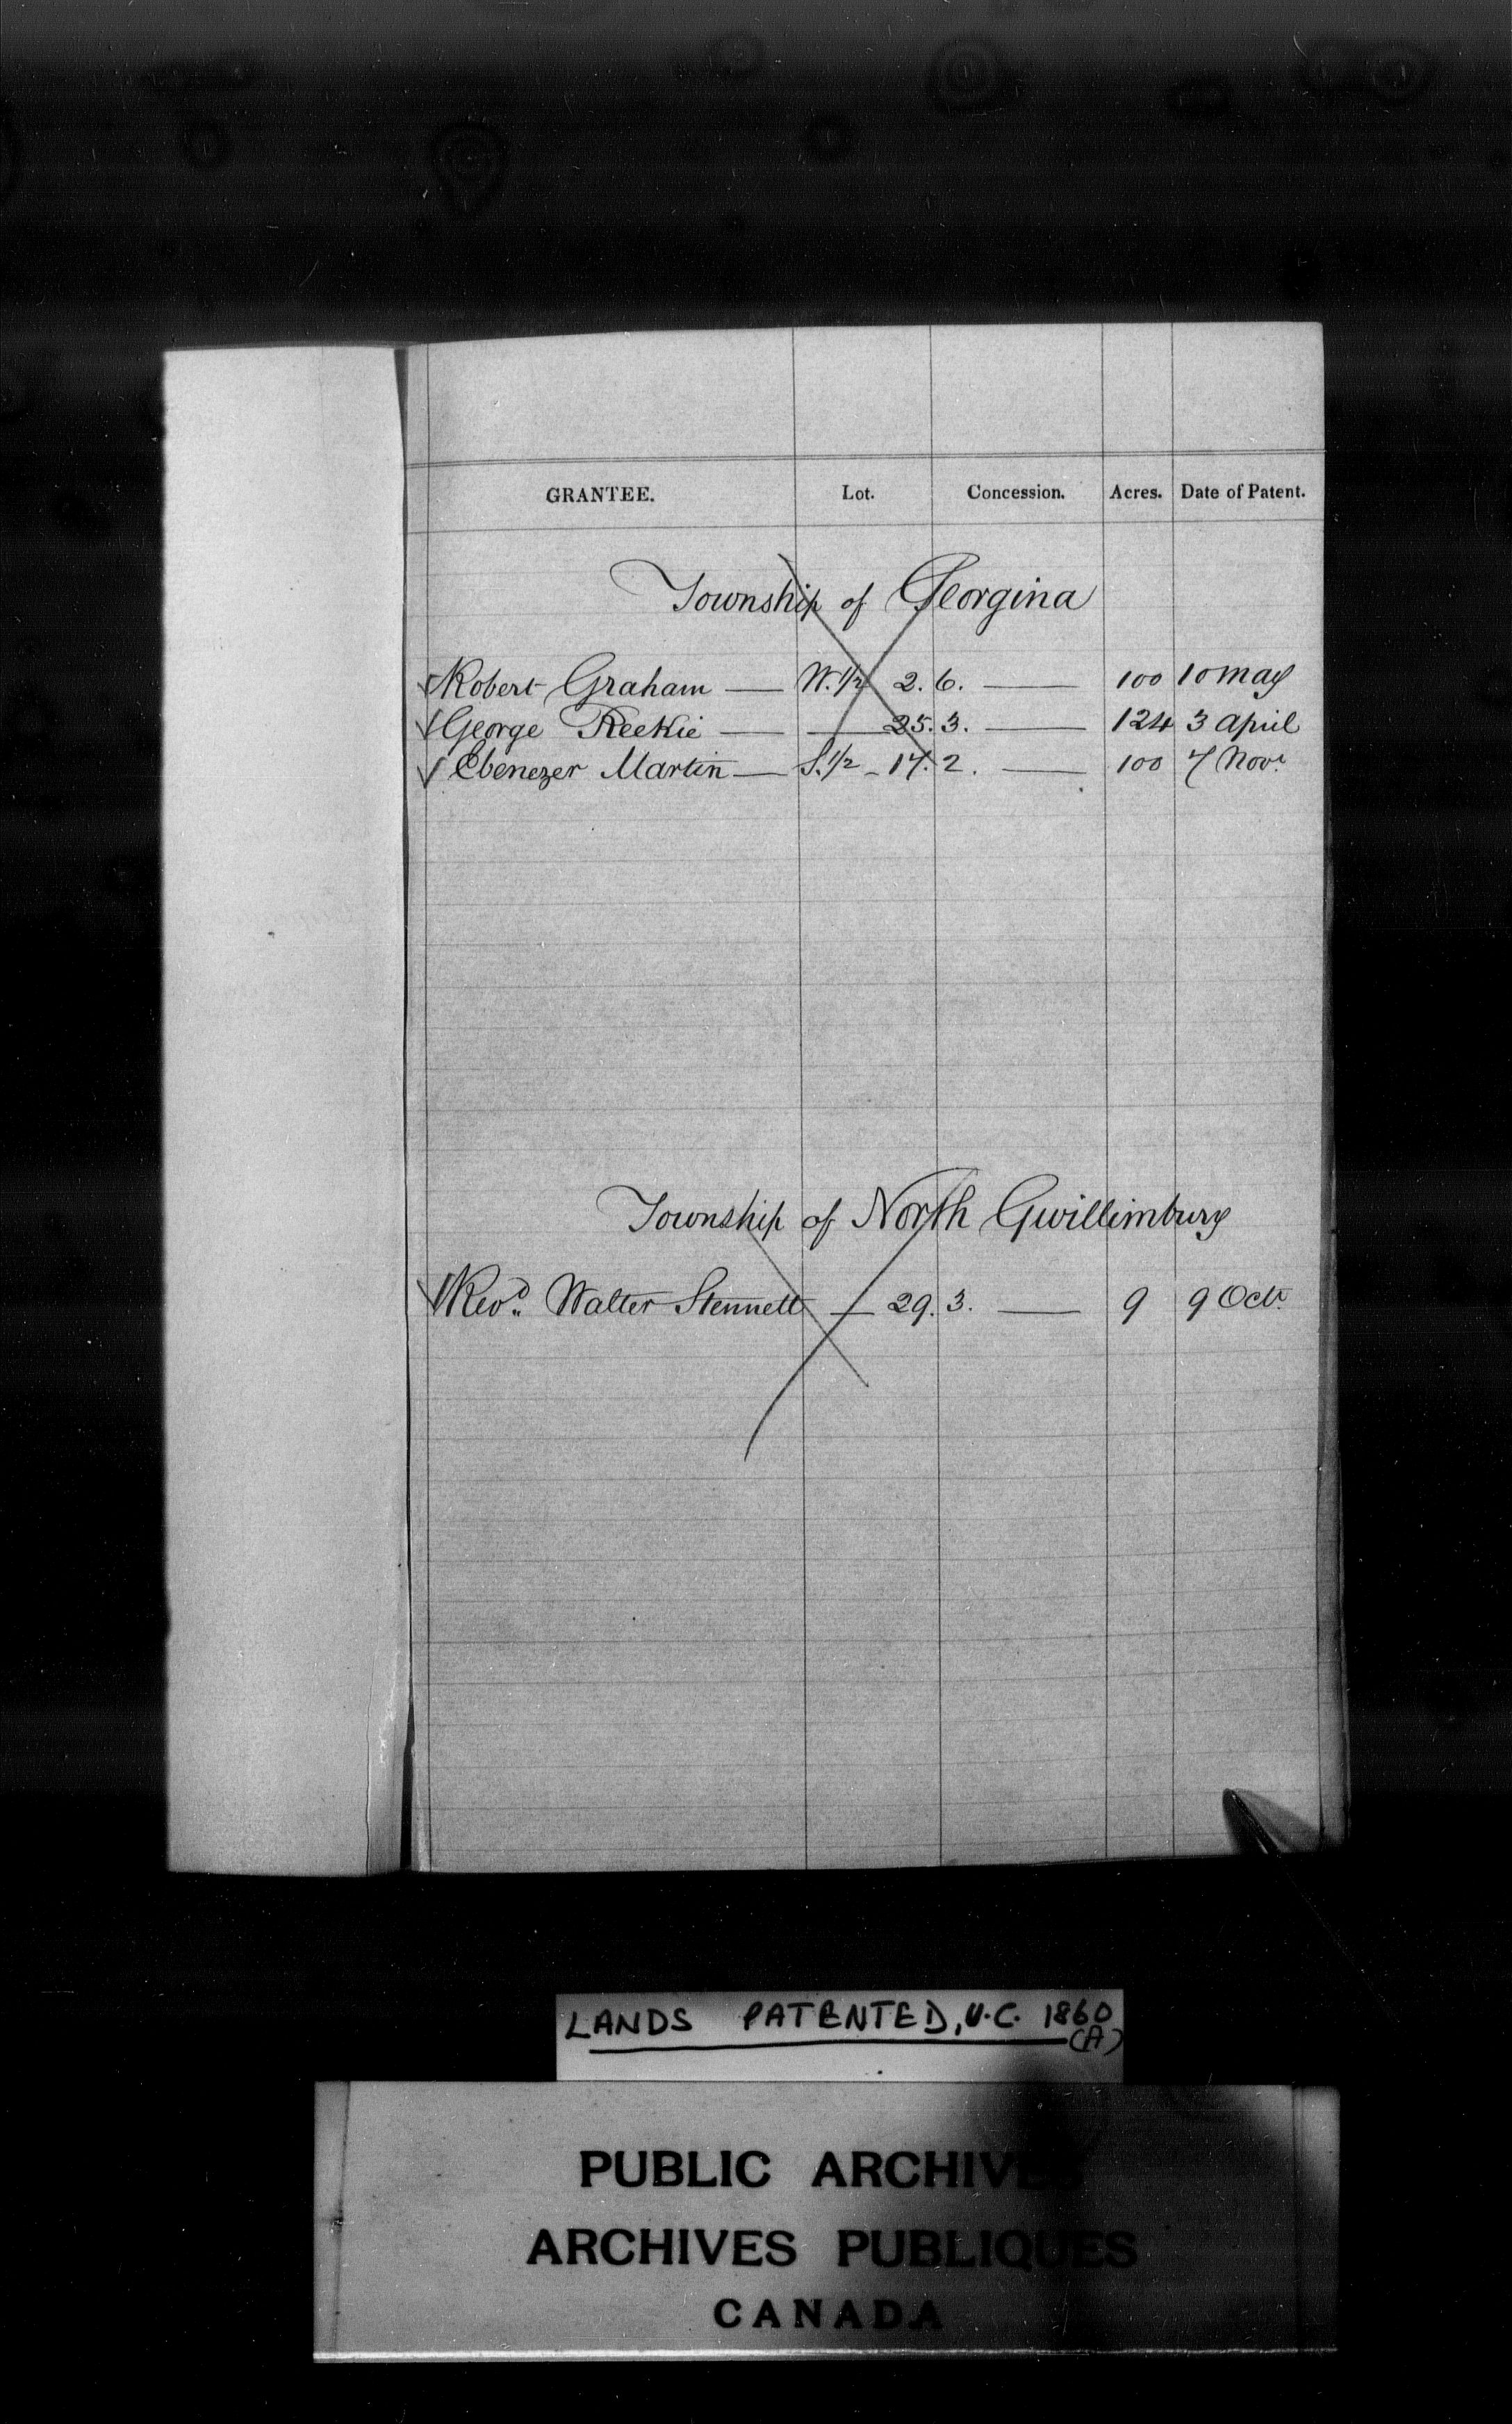 GRANTEE. Lot. Concession. Acres. Date of Patent.
Township of Georgina
Robert Graham — W. 1/2 2. 6. — 100 10 May
George Reekie — — 25. 3. — 124 3 April
Ebenezer Martin — S. 1/2 - 17. 2. — 100 7 Novr.
Township of North Gwillimbury
Revd. Walter Stennett — 29. 3. — 9 9 Octr.
LANDS PATENTED, U.C. 1860
(A)
PUBLIC ARCHIVES
ARCHIVES PUBLIQUES
CANADA